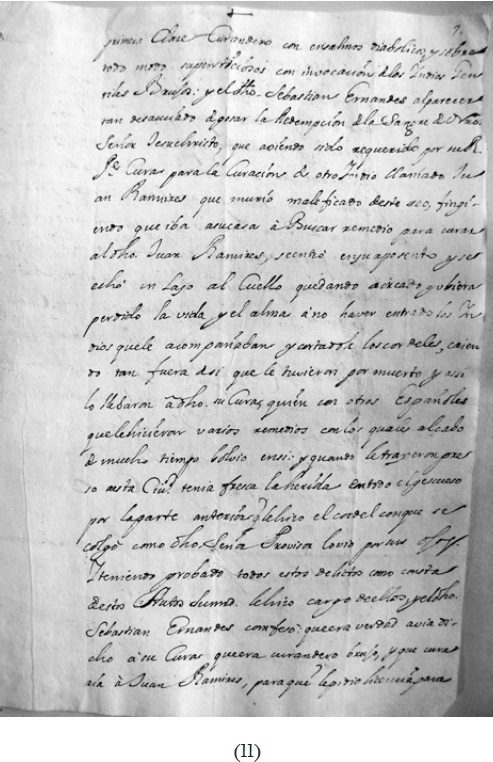 primera Clase Curandero con ensalmos diabolicos, y sobre
todo modo supersticiosos con invocación de los Indios Gen
tiles Brujos: y el dho. Sebastian Ernandes al parecer
tan desauciado de gosar la Redempción de la Sangre de Nro.
Señor Jesuchristo, que aviendo sido requerido por su R.
Pe. Cura para la Curación de otro Indio llamado Ju
an Ramires que murió maleficado deste reo, fingi
endo que iba a su casa à Buscar remedio para curar
al dho. Juan Ramires, se entró en su aposento y se
echó un Laso al Cuello quedando aorcado y ubiera
perdido la vida, y el alma à no haver entrado los In
dios que le acompañaban y cortadole los cordeles, caien
do tan fuera de si que le tuvieron por muerto y assi
lo llebaron à dho. su Cura, quién con otros Españoles
que le hicieron varios remedios con los quales al cabo
de mucho tiempo bolvio en si: y quando le trageron pre
so a esta Ciud. tenia fresca la herida en todo el pescueso
por la parte anterior, q le hico el cordel con que se
colgó como dho. Señor Provisor lo vio por sus ojos.
Y teniendo probado todos estos delictos como consta
de estos Autos Su md. le hico cargo de ellos, y el dho.
Sebastian Ernandes confesó: que era verdad avia di
cho à su Cura que era curandero brujo, y que cura
ria à Juan Ramires, para que le pidio licencia para
(11)